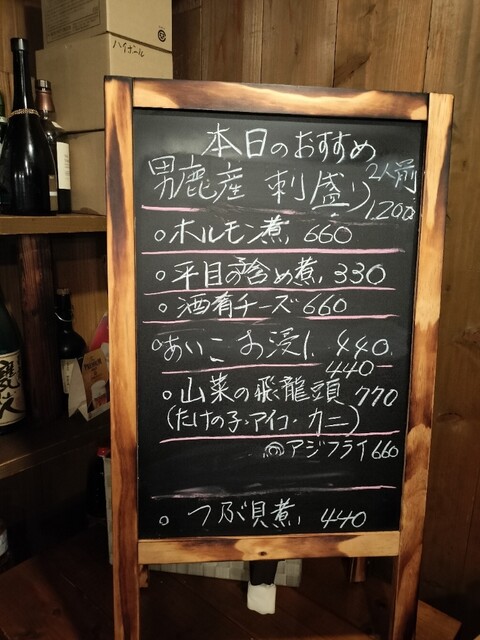 ハイボール
本日のおすすめ
男鹿産 刺盛り 2人前
1200
○ホルモン煮 660
○平目の含め煮 330
○酒肴チーズ 660
○あいこお浸し 440
440
○山菜の飛龍頭 770
(たけの子・アイコ・カニ)
◎アジフライ 660
○つぶ貝煮 440